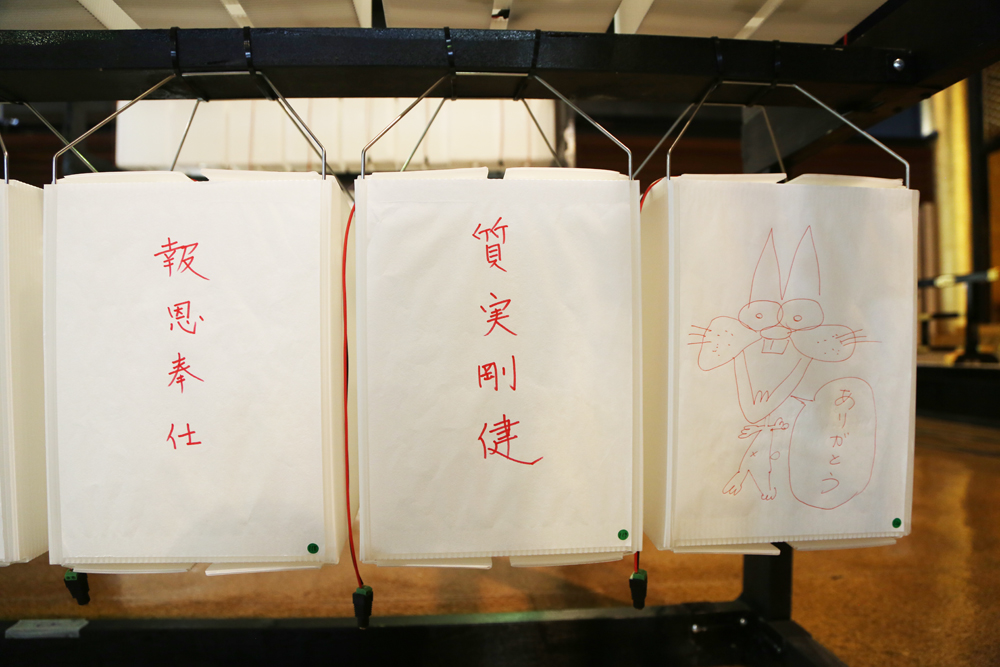 報恩奉仕
質実剛健
ありがとう